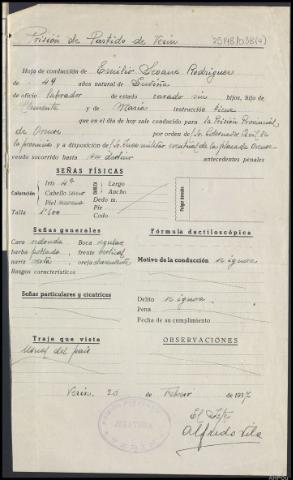 Prisión de Partido de Verín
Hoja de conducción de Emilio Seoane Rodriguez
de 44 años natural de
de oficio labrador de estado casado sin hijos, hijo de
Clemente y de María instrucción tiene
que en el día de hoy sale conducido para la Prisión Provincial
de Orense por orden de Sr. Gobernador Civil de
la provincia y a disposición de Sr. Juez militar de la plaza de Orense
yendo socorrido hasta su destino antecedentes penales
SEÑAS FÍSICAS
Coloración
Iris 4º
Cabello
Piel
Talla
OREJA
Largo
Ancho
Dedo m.
Pie
Codo
Pulgar derecho
Señas generales
Cara redonda Boca regular
barba poblada frente vertical
nariz recta oreja
Rasgos característicos
Señas particulares y cicatrices
Traje que viste
del país
Fórmula dactiloscópica
Motivo de la conducción se ignora
Delito se ignora
Pena
Fecha de su cumplimiento
OBSERVACIONES
Verin, 20 de Febrero de 1937
El Jefe
Alfredo Vila
JEFATURA
VERIN